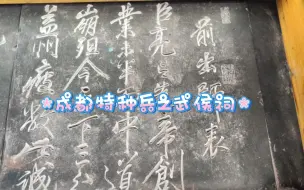 前出師表
臣亮言先帝創
業未半而中道
崩殂今天下三分
益州疲敝誠
成都特种兵之武侯祠